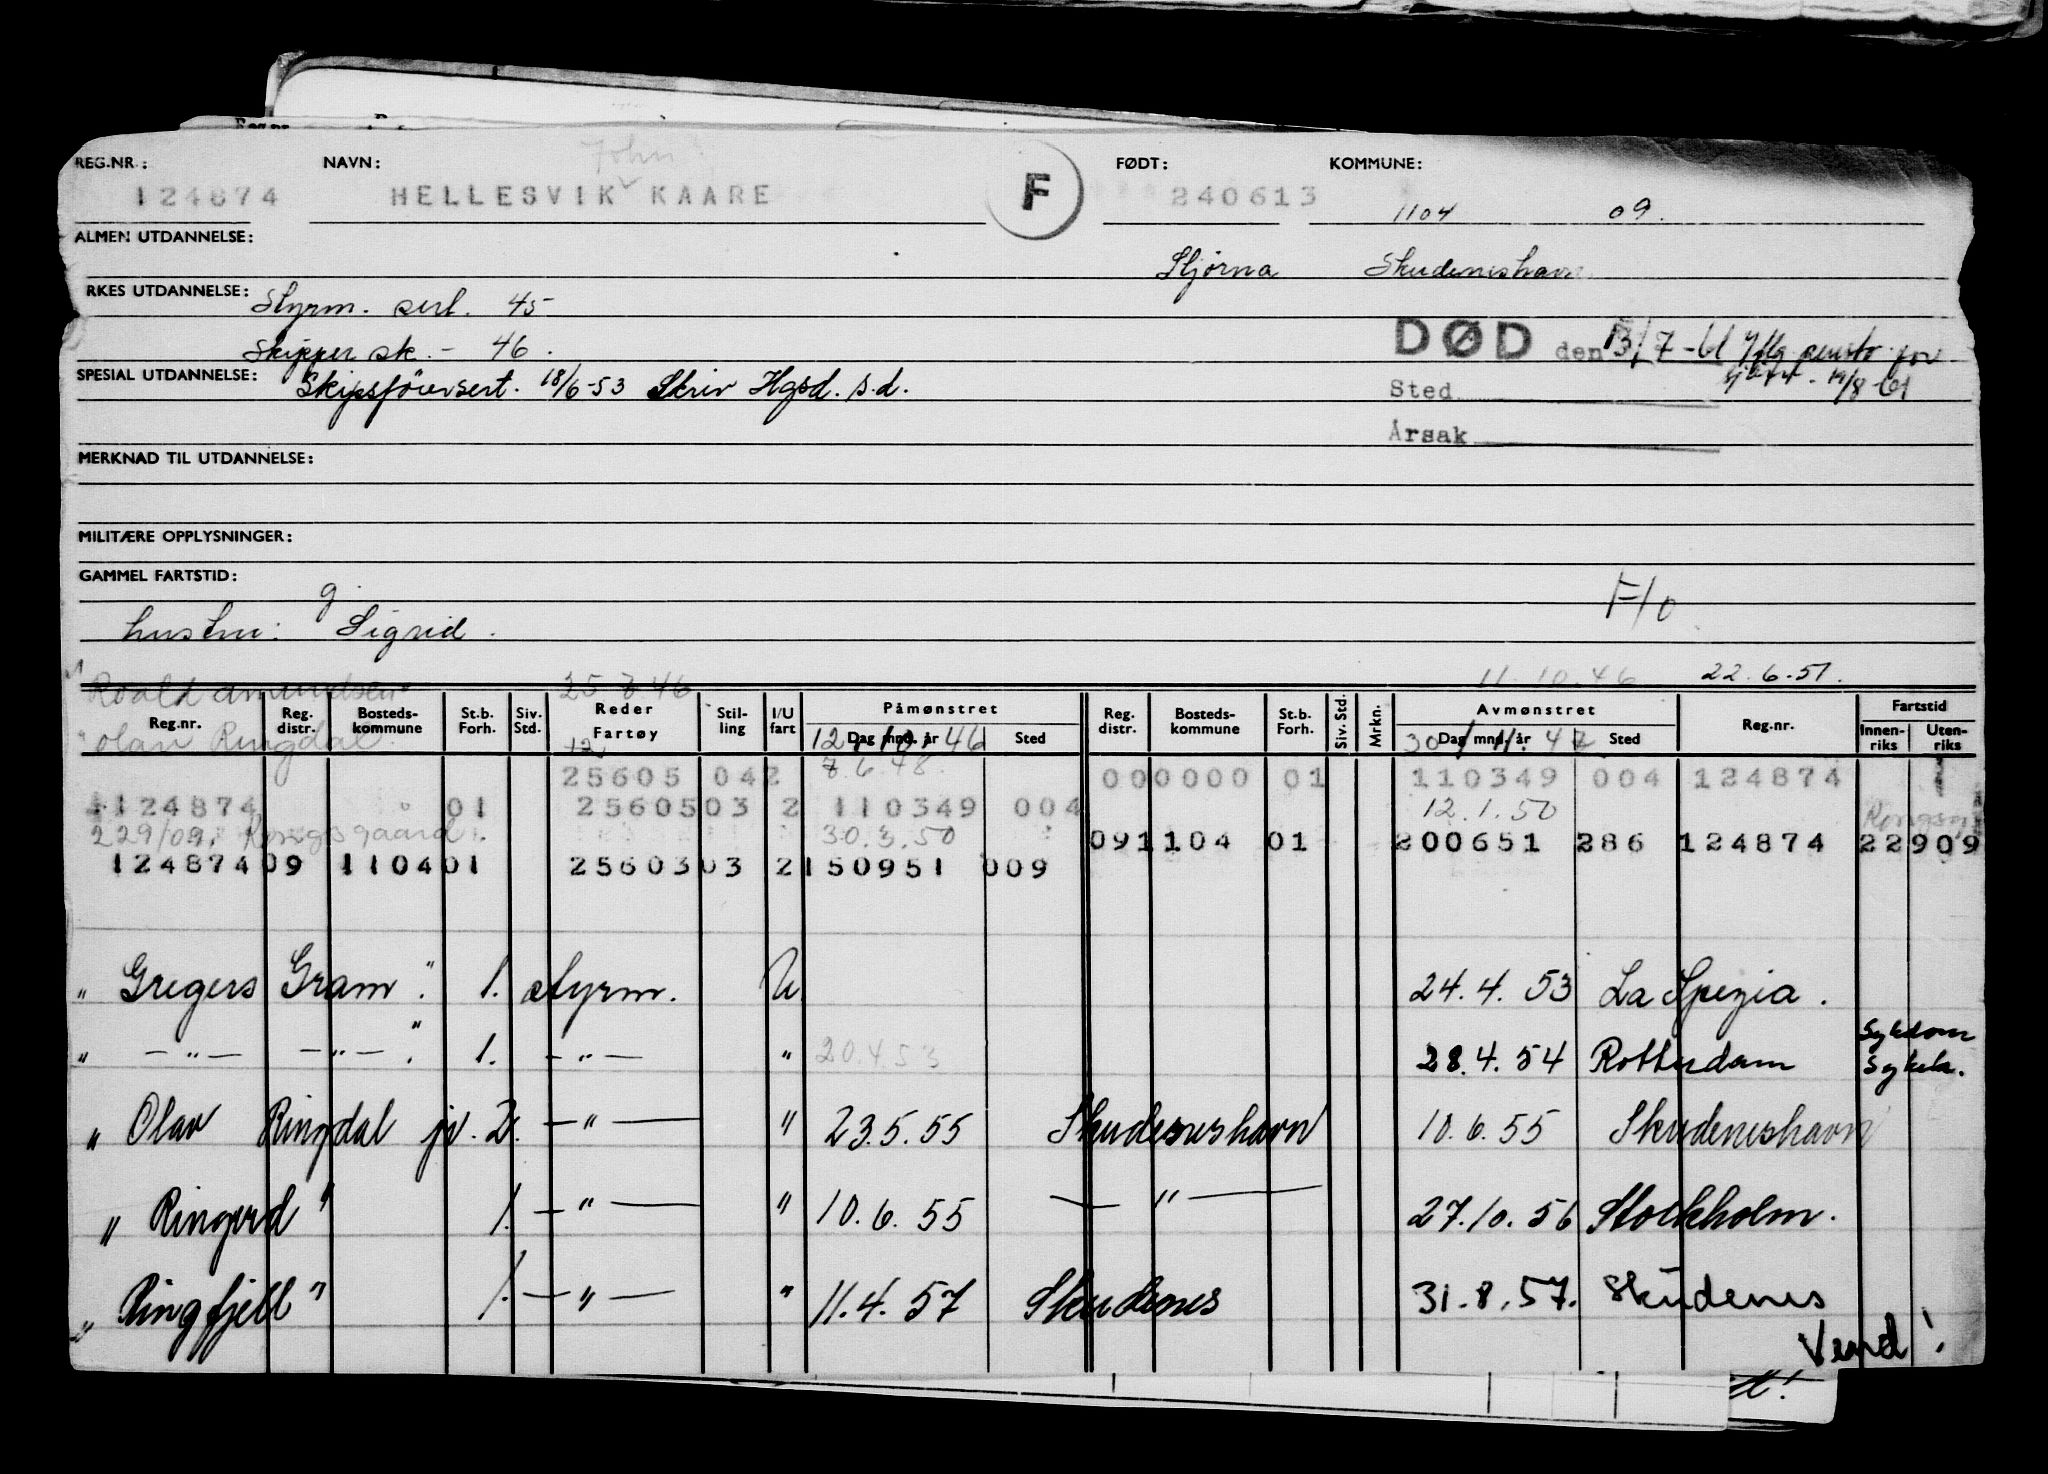 REG.NR.: NAVN: John FØDT: KOMMUNE:
124874 HELLESVIK KAARE F 240613 1104 09.
ALMEN UTDANNELSE:
Stjørna Skudeneshavn
RKES UTDANNELSE: Styrm. sert. 45
Skipper sk. - 46.
DØD den 13/7-61 Iflg. penstr. for
sjøm. 19/8-61
SPESIAL UTDANNELSE: Skipsförersert. 18/6-53 Skriv Hgsd. s.d.
Sted
Årsak
MERKNAD TIL UTDANNELSE:
MILITÆRE OPPLYSNINGER:
GAMMEL FARTSTID:
g F/0
hustru: Sigrid.
Roald Amundsen 25.7.46 11.10.46 22.6.51.
Reg.nr. Reg. distr. Bosteds-kommune St.b. Forh. Siv. Std. Reder Fartøy Stil-ling I/U fart Påmønstret Dag mnd. år Sted Reg. distr. Bosteds-kommune St.b. Forh. Siv. Std. Mrkn. Avmønstret Dag mnd. år Sted Reg.nr. Fartstid Innen-riks Uten-riks
" Olav Ringdal 12.10.46 30.11.47
7.6.48.
25605 042 000000 01 110349 004 124874
124874 01 2560503 2 110349 004 12.1.50
229/09. Kongsgaard. 30.3.50
091104 01 200651 286 124874 22909
124874 09 1104 01 2560303 2 150951 009
" Gregers Gram". 1. styrm. U 24.4.53 La Spezia.
" -"- -"-". 1. -"- " 20.4.53 28.4.54 Rotterdam Sykdom
" Olav Ringdal jr. 2. -"- " 23.5.55 Skudeneshavn 10.6.55 Skudeneshavn
" Ringerd" 1. -"- " 10.6.55 -"- 27.10.56 Stockholm.
" Ringfjell" 1. -"- " 11.4.57 Skudenes 31.8.57. Skudenes
Vend!